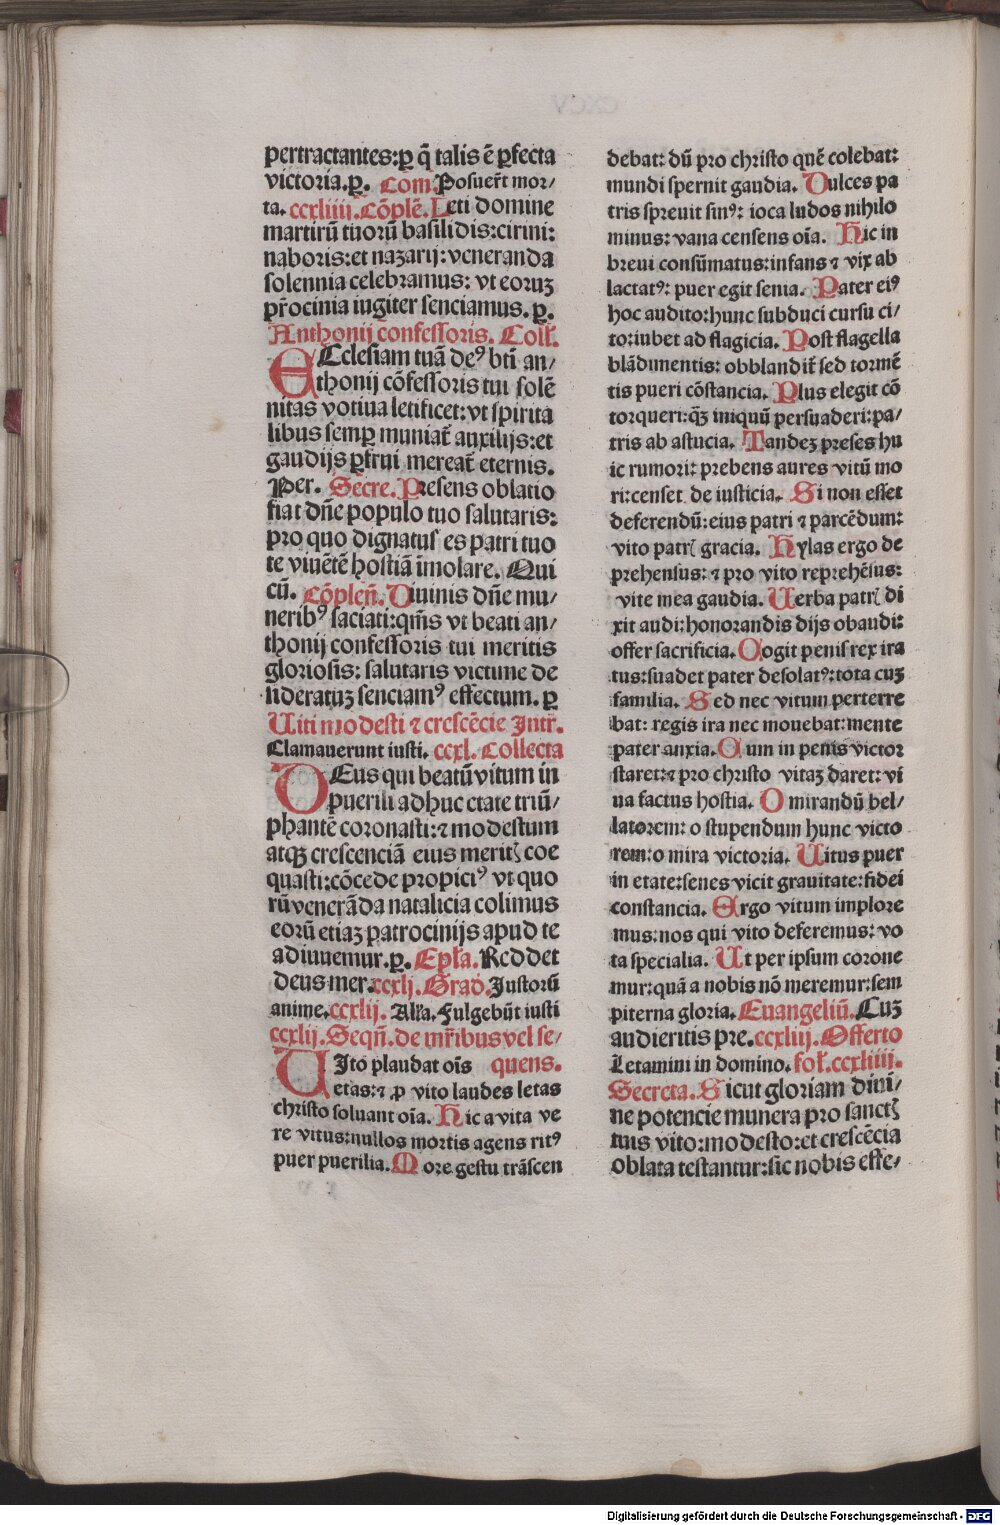 pertractantes:ꝑ q̄ talis ē ꝑfecta
victoria.ꝑ. Com Posuer̄t mor/
ta. ccxliiii. Cōplē. Leti domine
martirū tuorū basilidis:cirini:
naboris:et nazarij: veneranda
solennia celebramus: vt eoruꝫ
pr̄ocinia iugiter senciamus. ꝑ.
Anthonij confessoris. Coll̄.
ECclesiam tuā deꝰ bt̄i an/
thonij cōfessoris tui solē
nitas votiua letificet: vt spirita
libus semꝑ muniat̄ auxilijs: et
gaudijs ꝑfrui mereat̄ eternis.
Per. Secre. Presens oblatio
fiat dn̄e populo tuo salutaris:
pro quo dignatus es patri tuo
te viuētē hostiā imolare. Qui
cū. Cōplen̄. Diuinis dn̄e mu/
neribꝰ saciati: qm̄s vt beati an/
thonij confessoris tui meritis
gloriosis: salutaris victime de
sideratuꝫ senciamꝰ effectum. ꝑ
Uiti modesti ⁊ crescēcie Intr̄.
Clamauerunt iusti. ccxl. Collecta
DEus qui beatū vitum in
puerili adhuc etate triū/
phantē coronasti: ⁊ modestum
atqꝫ crescenciā eius meritꝭ coe
quasti: cōcede propiciꝰ vt quo
rū venerāda natalicia colimus
eorū etiaꝫ patrocinijs apud te
adiuuemur. ꝑ. Epl̄a. Reddet
deus mer. ccxlj. Grad̄. Justorū
anime. ccxlij. All̄a. Fulgebūt iusti
ccxlij. Seqn̄. de mr̄ibus vel se/
UIto plaudat oīs quens.
etas: ⁊ ꝓ vito laudes letas
christo soluant oīa. Hic a vita ve
re vitus: nullos mortis agens ritꝰ
puer puerilia. More gestu trāscen
debat: dū pro christo quē colebat:
mundi spernit gaudia. Dulces pa
tris spreuit sinꝰ: ioca ludos nihilo
minus: vana censens oīa. Hic in
breui consūmatus: infans ⁊ vix ab
lactatꝰ: puer egit senia. Pater eiꝰ
hoc audito: hunc subduci cursu ci/
to: iubet ad flagicia. Post flagella
blādimentis: obblandit̄ sed tormē
tis pueri cōstancia. Plus elegit cō
torqueri: qꝫ iniquū persuaderi: pa/
tris ab astucia. Tandeꝫ preses hu
ic rumori: prebens aures vitū mo
ri: censet de iusticia. Si non esset
deferendū: eius patri ⁊ parcēdum:
vito patrꝭ gracia. Hylas ergo de
prehensus: ⁊ pro vito reprehēsus:
vite mea gaudia. Uerba patrꝭ di
xit audi: honorandis dijs obaudi:
offer sacrificia. Cogit penis rex ira
tus: suadet pater desolatꝰ: tota cuꝫ
familia. Sed nec vitum perterre
bat: regis ira nec mouebat: mente
pater anxia. Cum in penis victor
staret: ⁊ pro christo vitaꝫ daret: vi
ua factus hostia. O mirandū bel/
latorem: o stupendum hunc victo
rem: o mira victoria. Uitus puer
in etate: senes vicit grauitate: fidei
constancia. Ergo vitum implore
mus: nos qui vito deferemus: vo
ta specialia. Ut per ipsum corone
mur: quā a nobis nō meremur: sem
piterna gloria. Euangeliū. Cuꝫ
audieritis pre. ccxliij. Offerto
Letamini in domino. fol̄. ccxliiii.
Secreta. Sicut gloriam diui/
ne potencie munera pro sanctꝭ
tuis vito: modesto: et crescēcia
oblata testantur: sic nobis effe/
Digitalisierung gefördert durch die Deutsche Forschungsgemeinschaft - DFG